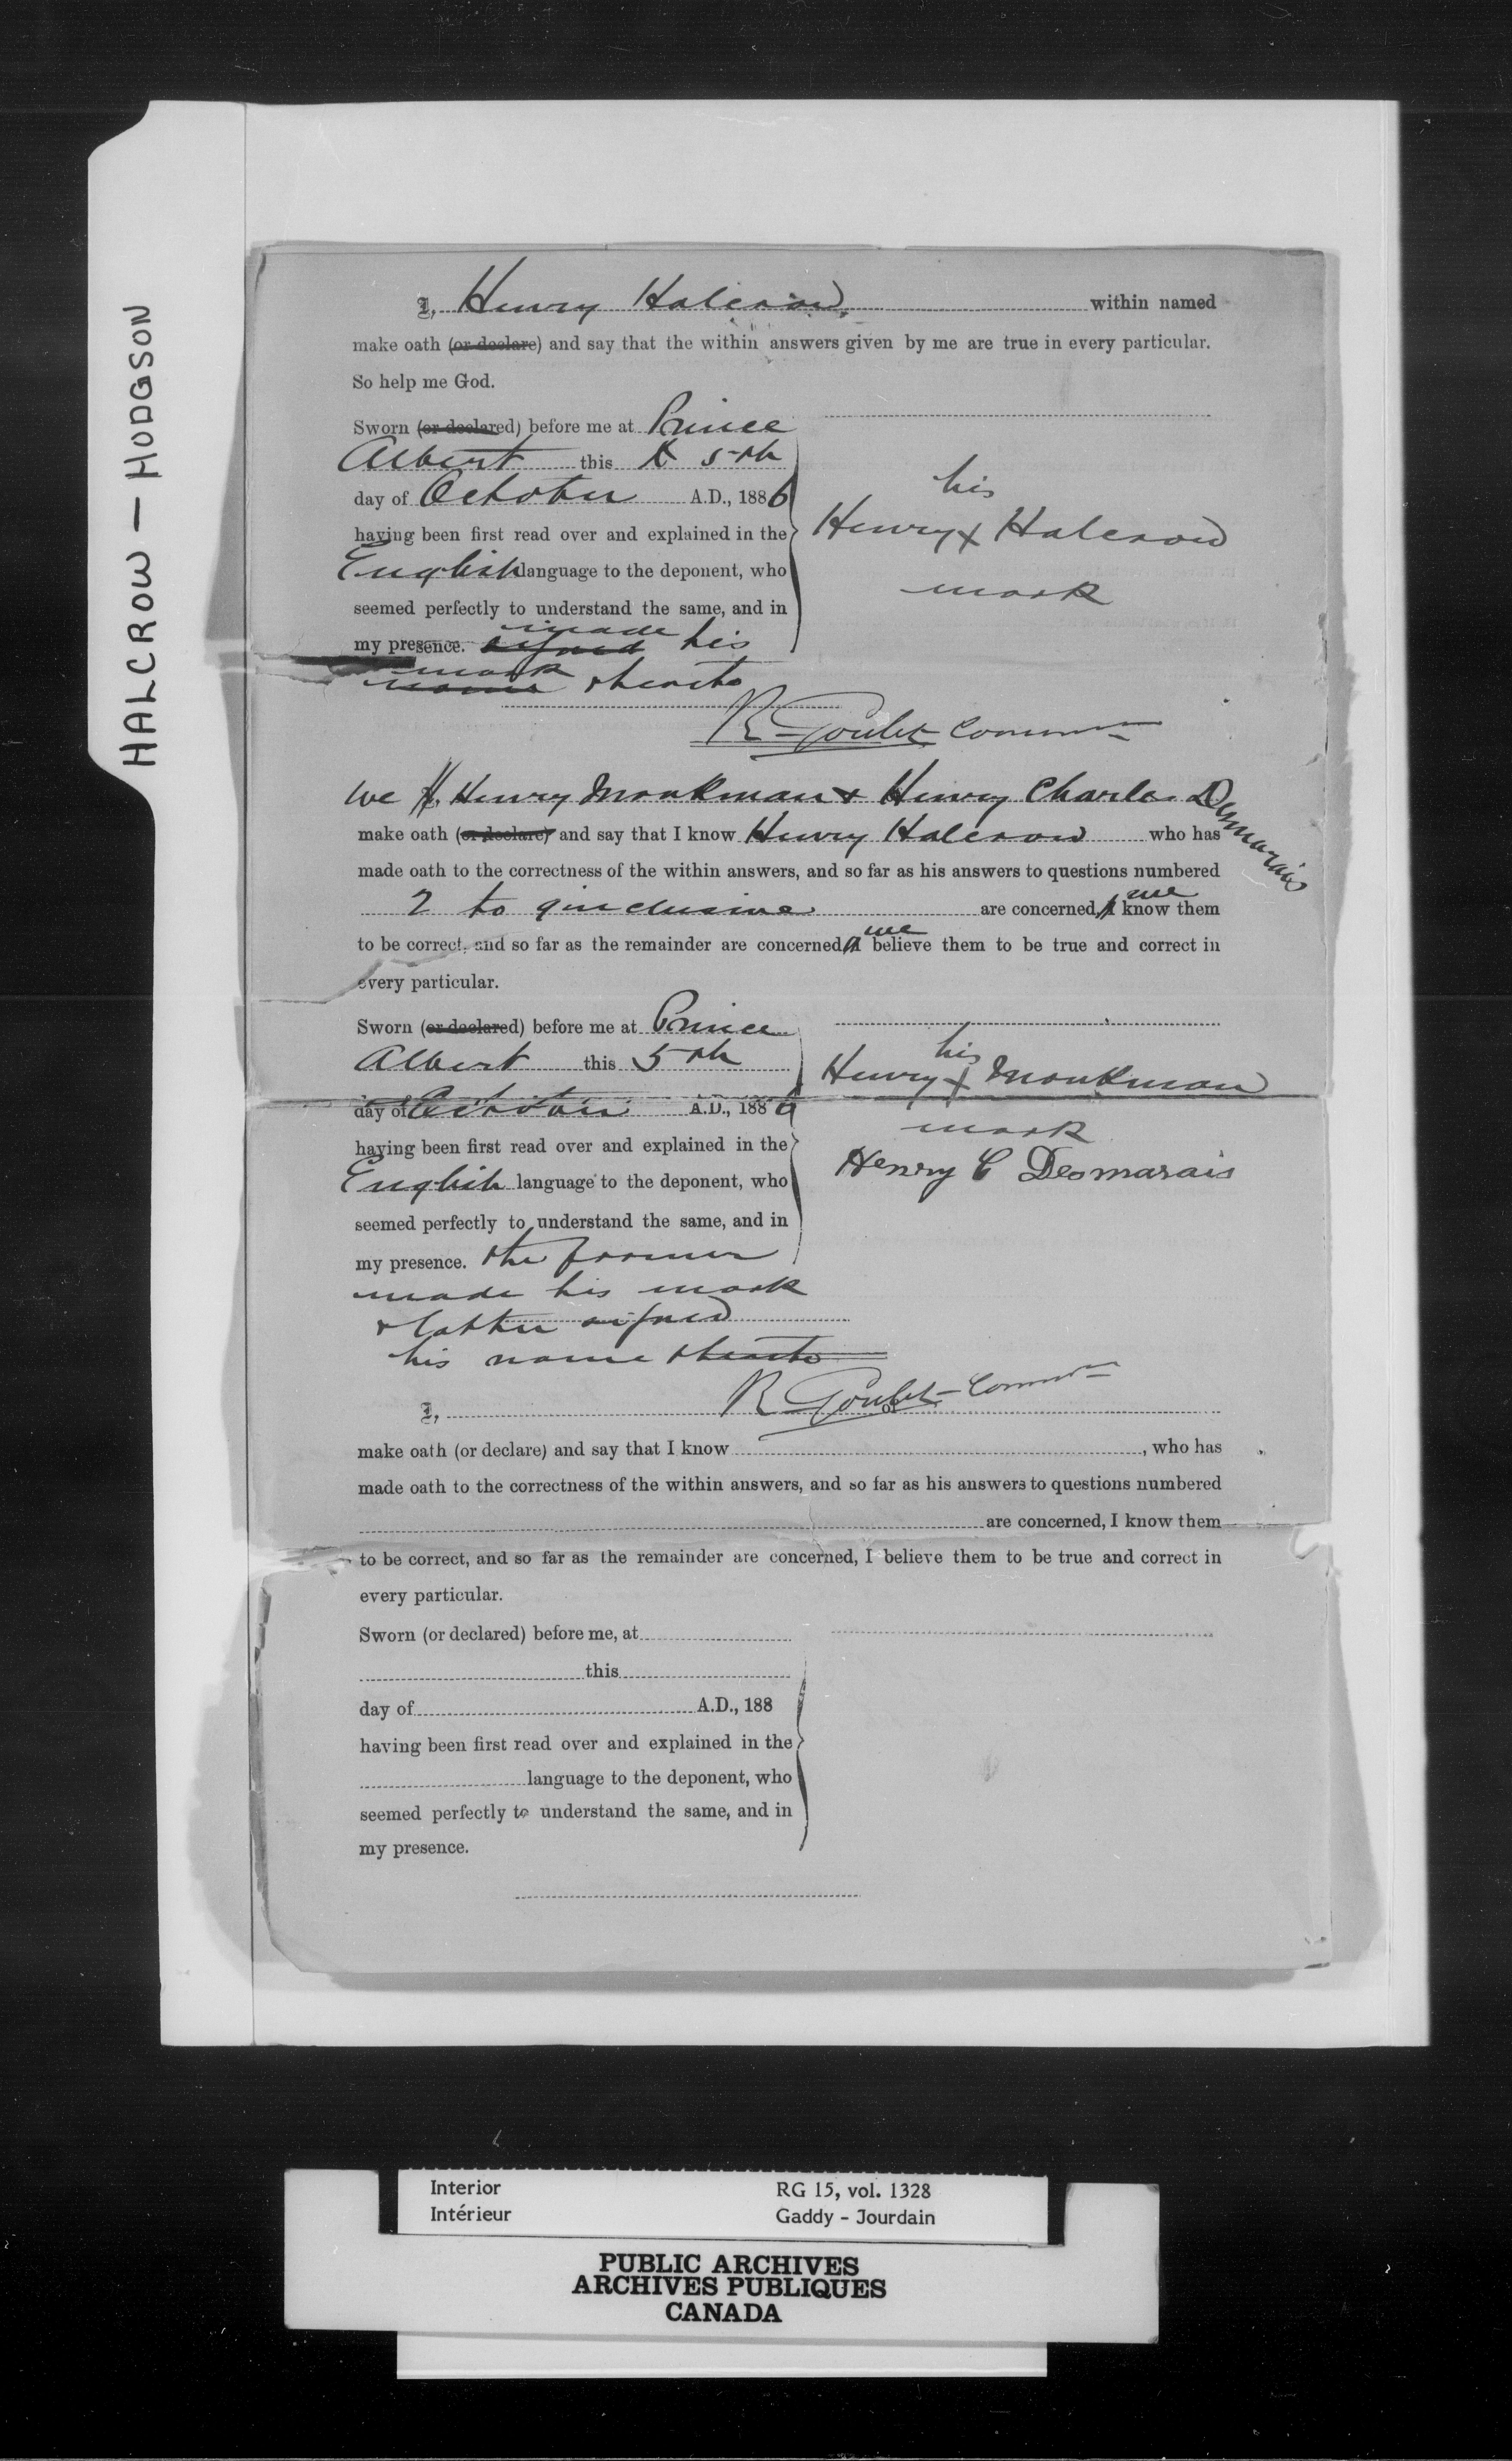 HALCROW — HODGSON
I, Henry Halcrow, within named
make oath (or declare) and say that the within answers given by me are true in every particular.
So help me God.
Sworn (or declared) before me at Prince
Albert this 5th
day of October A.D., 1886
having been first read over and explained in the
English language to the deponent, who
seemed perfectly to understand the same, and in
my presence. signed made his
name mark thereto
his
Henry X Halcrow
mark
R Goulet Commr
We H. Henry Monkman & Henry Charles Desmarais
make oath (or declare) and say that I know Henry Halcrow who has
made oath to the correctness of the within answers, and so far as his answers to questions numbered
2 to 9 inclusive are concerned, I we know them
to be correct, and so far as the remainder are concerned, I we believe them to be true and correct in
every particular.
Sworn (or declared) before me at Prince
Albert this 5th
day of October A.D., 1886
having been first read over and explained in the
English language to the deponent, who
seemed perfectly to understand the same, and in
my presence. the former
made his mark
& latter signed
his name thereto
his
Henry X Monkman
mark
Henry C Desmarais
R Goulet Commr
I, of
make oath (or declare) and say that I know , who has
made oath to the correctness of the within answers, and so far as his answers to questions numbered
are concerned, I know them
to be correct, and so far as the remainder are concerned, I believe them to be true and correct in
every particular.
Sworn (or declared) before me, at
this
day of A.D., 188
having been first read over and explained in the
language to the deponent, who
seemed perfectly to understand the same, and in
my presence.
Interior RG 15, vol. 1328
Intérieur Gaddy - Jourdain
PUBLIC ARCHIVES
ARCHIVES PUBLIQUES
CANADA